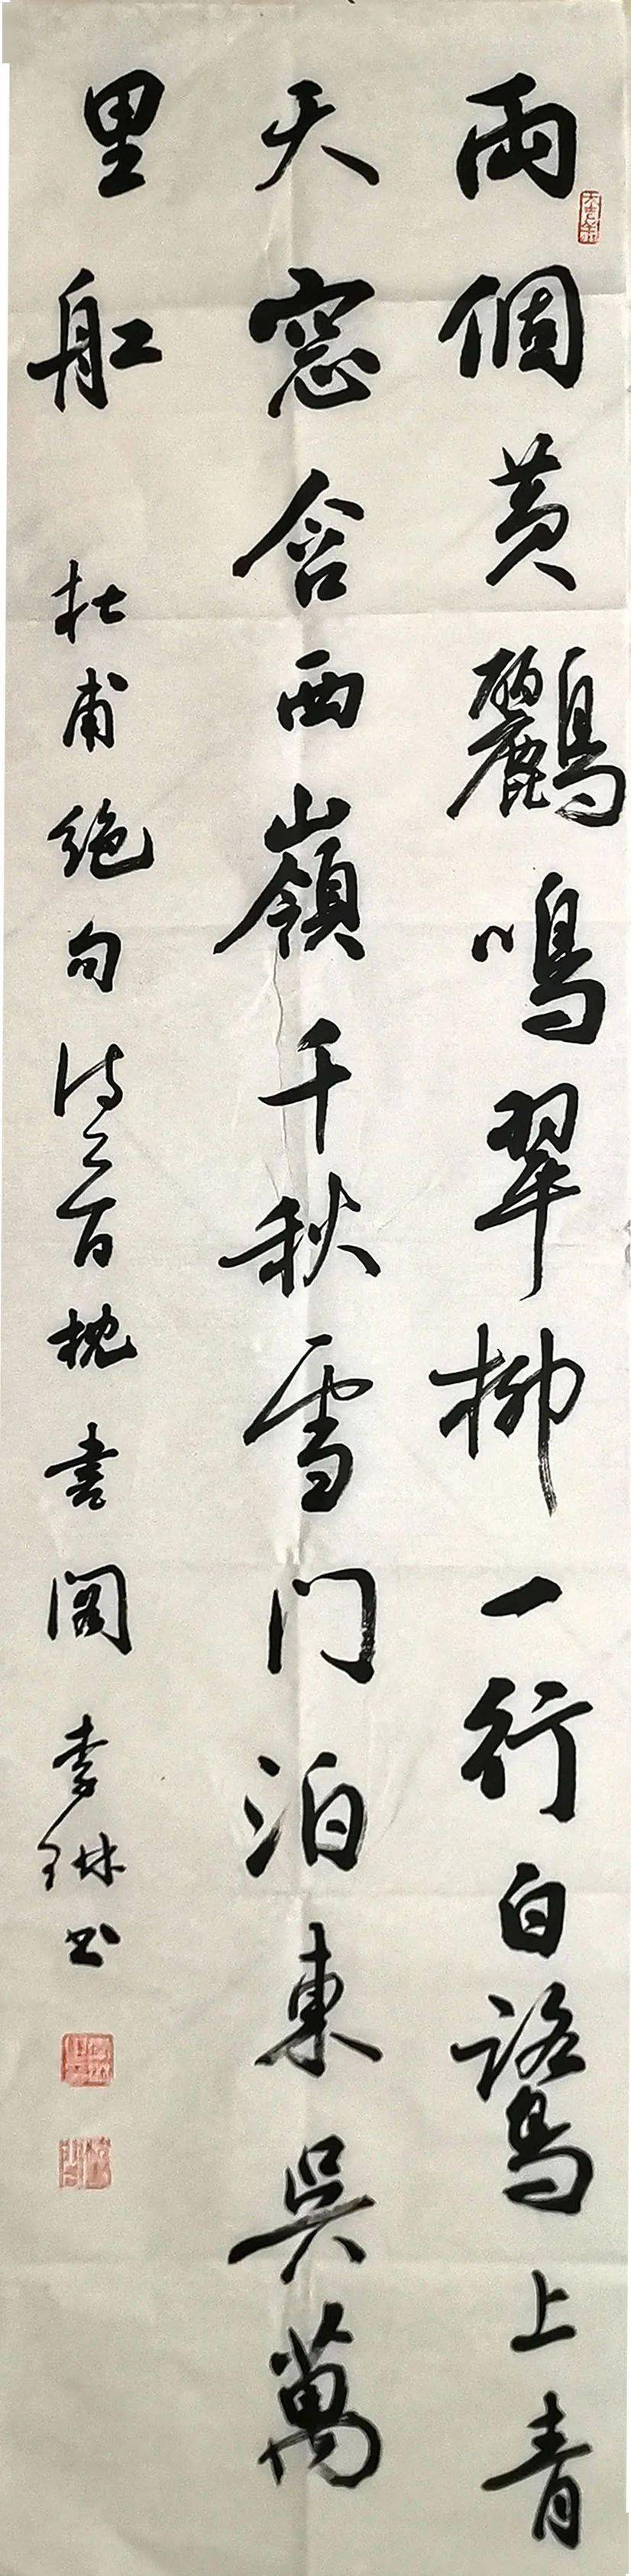 兩個黃鸝鳴翠柳一行白鷺上青
天窓含西嶺千秋雪门泊東吳萬
里舡 杜甫絕句诗首枕書阁 李琳书